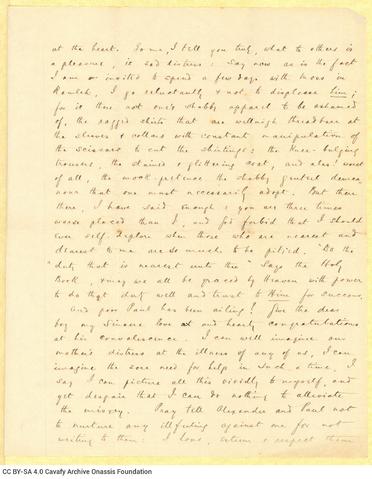 at the heart. To me, I tell you truly, what to others is
a pleasure, is sad distress: Say now as is the fact
I am invited to spend a few days with Mons in
Ramleh, I go reluctantly & not to displease him;
for is there not one's shabby apparel to be ashamed
of, the ragged shirts that are wellnigh threadbare at
the sleeves & collars with constant manipulation of
the scissors to cut the shirtings; the knee-bulging
trousers, the stained & glittering coat, and alas! worst
of all, the mock-pretence, the shabby genteel demea-
nour that one must necessarily adopt. But there
there, I have said enough: you are three times
worse placed than I, and God forbid that I should
ever self-deplore when those who are nearest and
dearest to me are so much to be pitied. "Do the
"duty that is nearest unto thee" Says the Holy
Book, & may we all be graced by Heaven with power
to do that duty well and trust to Him for succour.
and poor Paul has been ailing! Give the dear
boy my sincere love and hearty congratulations
at his convalescence. I can well imagine our
mother's distress at the illness of any of us, I can
imagine the sore need for help in such a time, I
say I can picture all this vividly to myself, and
yet despair that I can do nothing to alleviate
the misery. Pray tell Alexander and Paul not
to nurture any illfeeling against me for not
writing to them: I love, esteem & respect them
CC BY-SA 4.0 Cavafy Archive Onassis Foundation